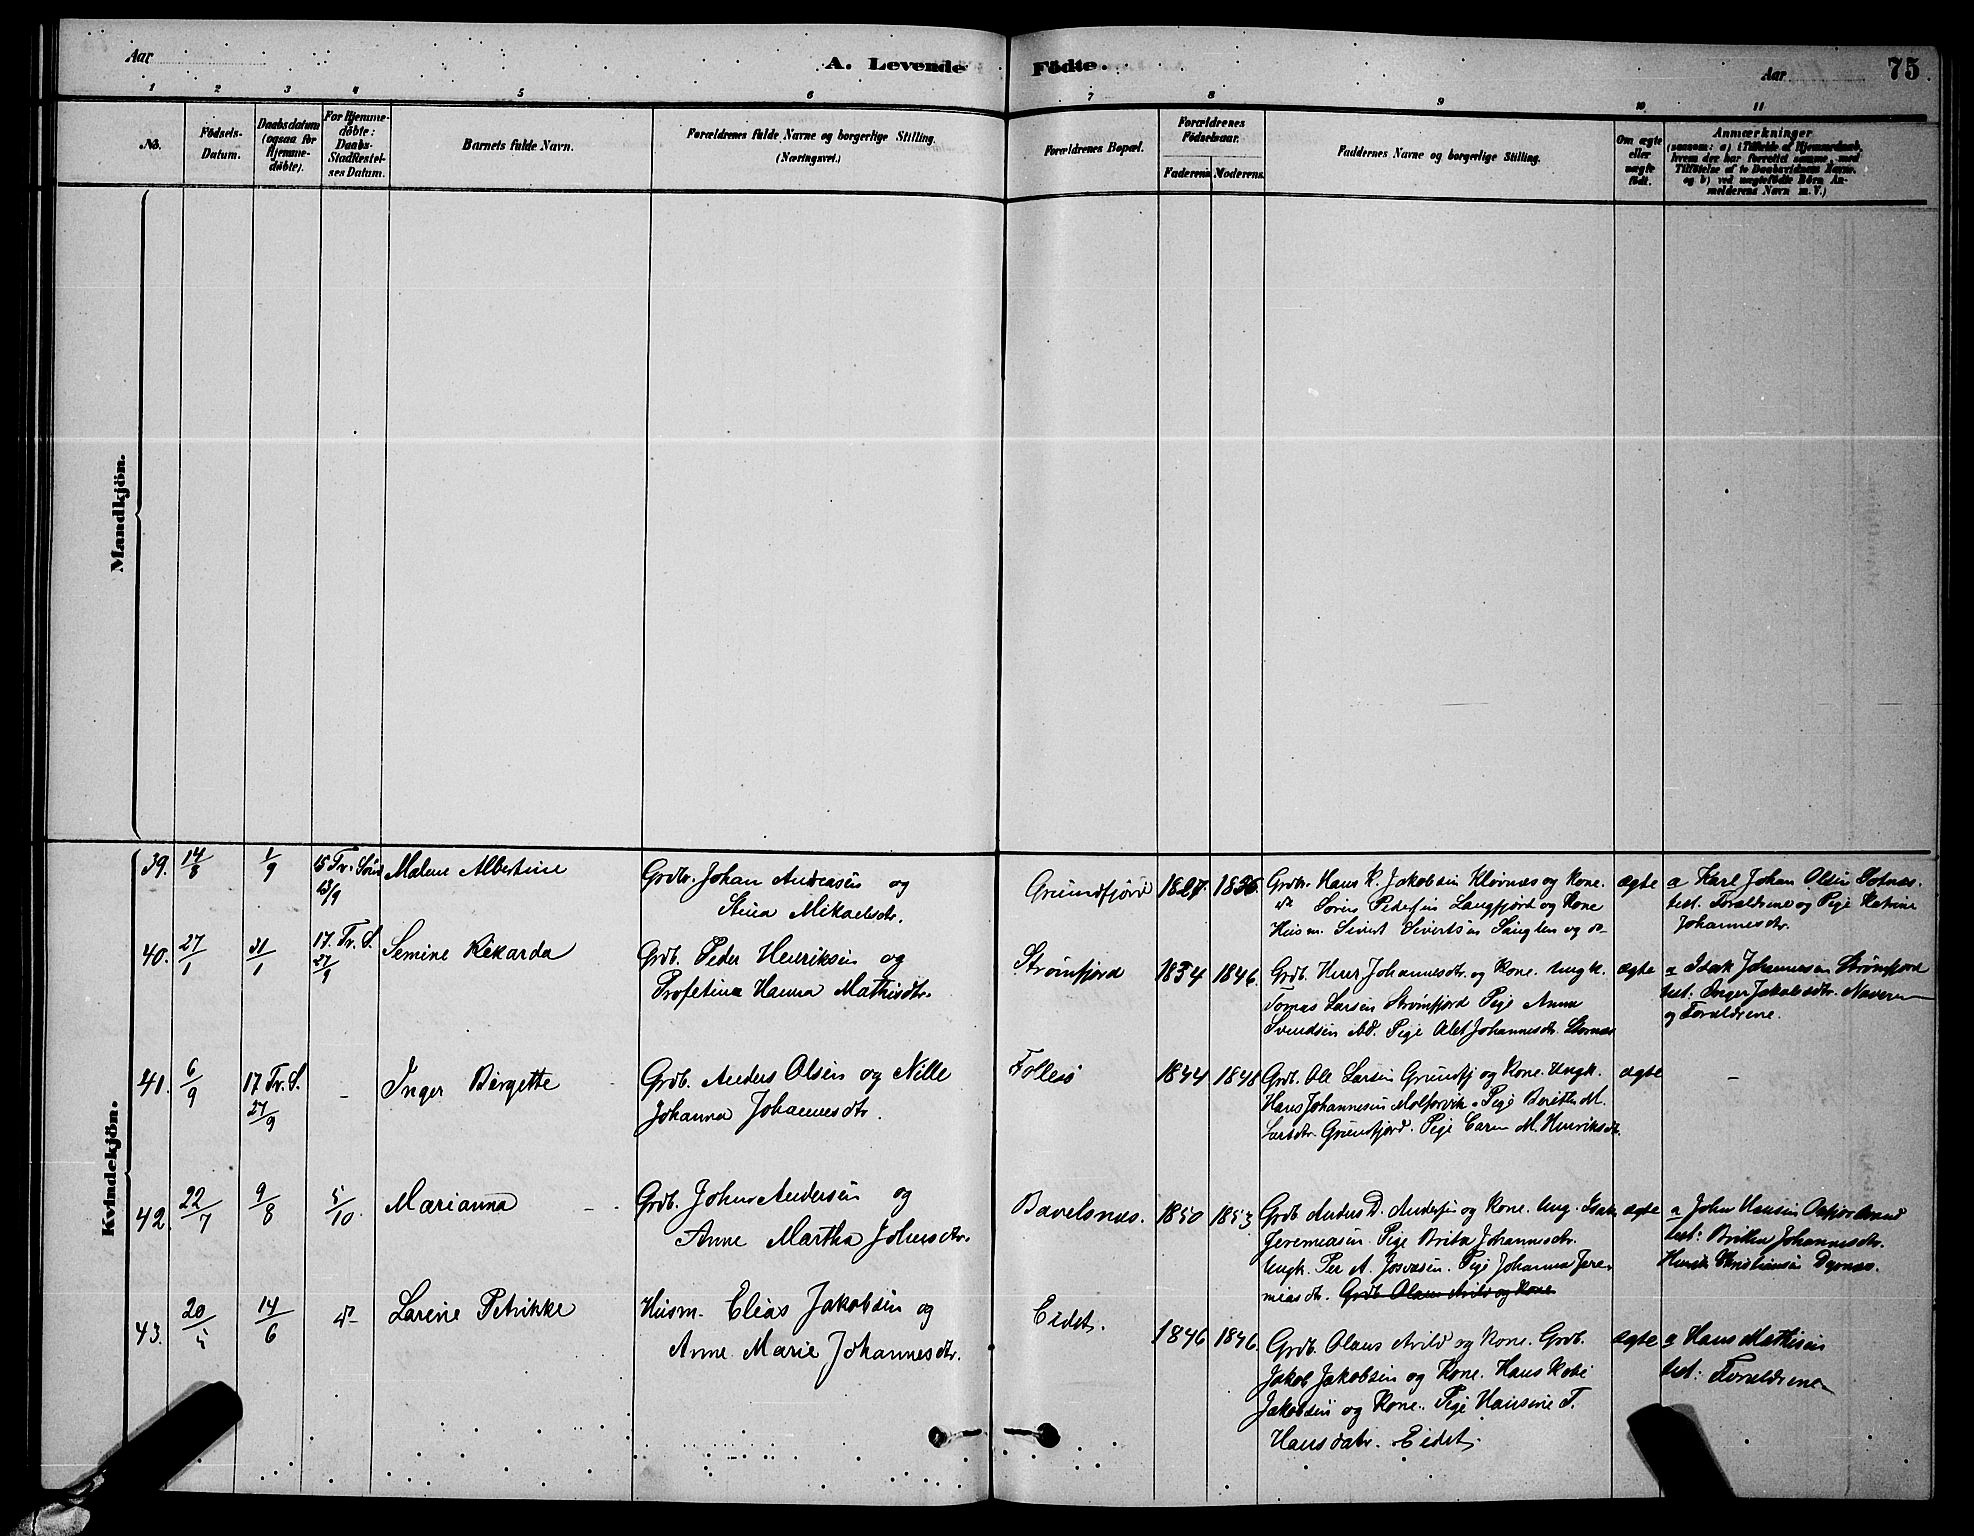 Aar
A. Levende Födte.
Aar
75
1 2 3 4 5 6 7 8 9 10 11
No.
Fødsels-
Datum.
Daabsdatum
(ogsaa for
Hjemme-
døbte).
For Hjemme-
døbte:
Daabs-
Stadfestel-
ses Datum.
Barnets fulde Navn.
Forældrenes fulde Navne og borgerlige Stilling.
(Næringsvei.)
Forældrenes Bopæl.
Forældrenes
Fødselsaar.
Faderens Moderens
Faddernes Navne og borgerlige Stilling.
Om ægte
eller
uægte
født.
Anmærkninger
(saasom: a) i Tilfælde af Hjemmedaab,
hvem der har forrettet samme, med
Tilføielse af to Daabsvidners Navne,
og b) ved uægtefødte Børn An-
melderens Navn m. V.)
Mandkjön.
Kvindekjön.
39. 14/8 1/9 15 Tr. Sønd 13/9
Malene Albertine
Grdbr. Johan Andreasen og
Stina Mikaelsdtr.
Grundfjord 1827. 1835.
Grdbr. Hans K. Jakobsen Kløvnæs og Kone.
do Søren Pedersen Langfjord og Kone
Husm. Sivert Sivertsen og do
ægte
a Karl Johan Olsen
test. Forældrene og Pige Katrine
Johannesdtr.
40. 27/1 31/1 17. Tr. S. 27/9
Semine Rikarda
Grdb. Peder Henriksen og
Profetina Hanna Mathisdtr.
Strømfjord 1834 1846.
Grdb. Johannesdtr. og Kone. Ungk.
Tomas Larsen Strømfjord Pige Anna
Svendsen ibd. Pige Alet Johannesdtr.
ægte
a Isak Johannesen Strømfjord
test: Inger Jakobsdtr.
og Forældrene.
41. 6/9 17 Tr. S. 27/9 -
Inger Birgette
Grdb. Anders Olsen og Nille
Johanna Johannesdtr.
Follesø 1844 1848
Grdb. Ole Larsen Grundfj og Kone. Ungk.
Hans Johannesen Pige Berithe M.
Larsdtr. Grundfjord. Pige Caren M. Henriksdtr.
ægte -
42. 22/7 9/8 5/10.
Marianna
Grdb. Johan Andersen og
Anne Martha Johnsdtr.
Bavelsnæs. 1850 1853
Grdb Anders D. Andersen og Kone. Ung. Isak
Jeremiasen. Pige Brita Johannesdtr.
Ungk. Per A. Josvasen. Pige Johanna Jere-
miasdtr. Grdb. Olaus Arild og Kone
ægte
a John Hansen
test: Johannesdtr.
Henrik Kristiansen
43. 20/5 14/6 do
Larine Petrikke
Husm. Elias Jakobsen og
Anne Marie Johannesdtr.
Eidet. 1846 1846.
Grdb. Olaus Arild og Kone. Grdb.
Jakob Jakobsen og Kone. Hans
Jakobsen og Kone. Pige Hansine T.
Hansdatr. Eidet.
ægte
a Hans Mathisen
test: Forældrene